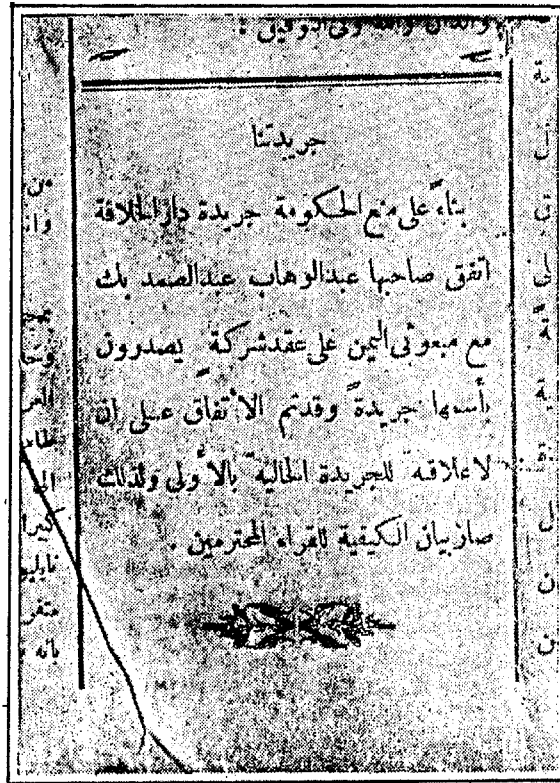 والله ولى التوفيق :
جريدتنا
بناءً على منع الحكومة جريدة دار الخلافة
اتفق صاحبها عبدالوهاب عبدالصمد بك
مع مبعوثى اليمن على عقد شركة يصدرون
بأسمها جريدةً وقدتم الأتفاق على ان
لاعلاقة للجريدة الحالية بالأولى ولذلك
صار بيان الكيفية للقراء المحترمين .